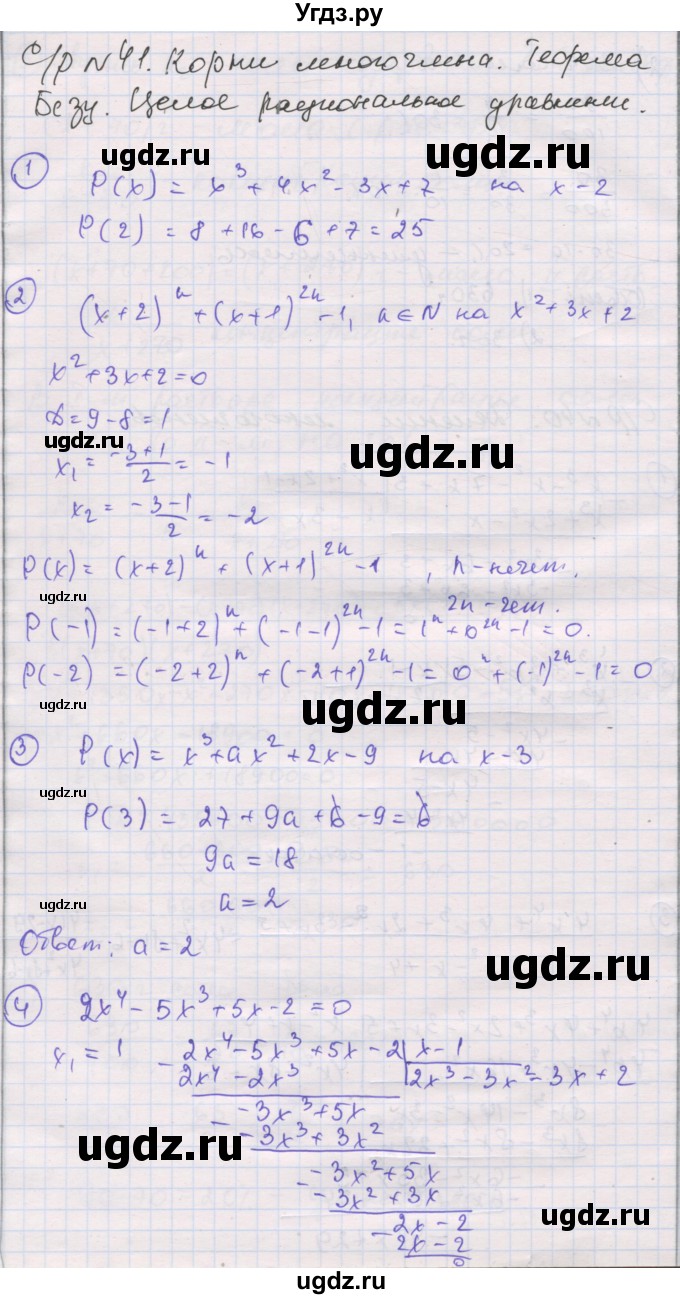 Угдз.ру
С/р №41. Корни многочлена. Теорема
Безу. Целое рациональное уравнение.
ugdz.ru ugdz.ru
1 P(x) = x³ + 4x² - 3x + 7 на x - 2
P(2) = 8 + 16 - 6 + 7 = 25
2 (x+2)ⁿ + (x+1)²ⁿ - 1, n ∈ N на x² + 3x + 2
x² + 3x + 2 = 0
D = 9 - 8 = 1
ugdz.ru
x₁ = (-3+1)/2 = -1
ugdz.ru
x₂ = (-3-1)/2 = -2
P(x) = (x+2)ⁿ + (x+1)²ⁿ - 1, n - нечет.
ugdz.ru
2n - чет.
P(-1) = (-1+2)ⁿ + (-1-1)²ⁿ - 1 = 1ⁿ + 0²ⁿ - 1 = 0.
P(-2) = (-2+2)ⁿ + (-2+1)²ⁿ - 1 = 0ⁿ + (-1)²ⁿ - 1 = 0
ugdz.ru
ugdz.ru
3 P(x) = x³ + ax² + 2x - 9 на x - 3
ugdz.ru
P(3) = 27 + 9a + 6 - 9 = 6
9a = 18
a = 2
ugdz.ru
Ответ: a = 2
ugdz.ru
4 2x⁴ - 5x³ + 5x - 2 = 0
x₁ = 1 - 2x⁴ - 5x³ + 5x - 2 | x - 1
2x⁴ - 2x³ 2x³ - 3x² - 3x + 2
- -3x³ + 5x
-3x³ + 3x²
ugdz.ru
- -3x² + 5x
-3x² + 3x
ugdz.ru
- 2x - 2
2x - 2
0
ugdz.ru